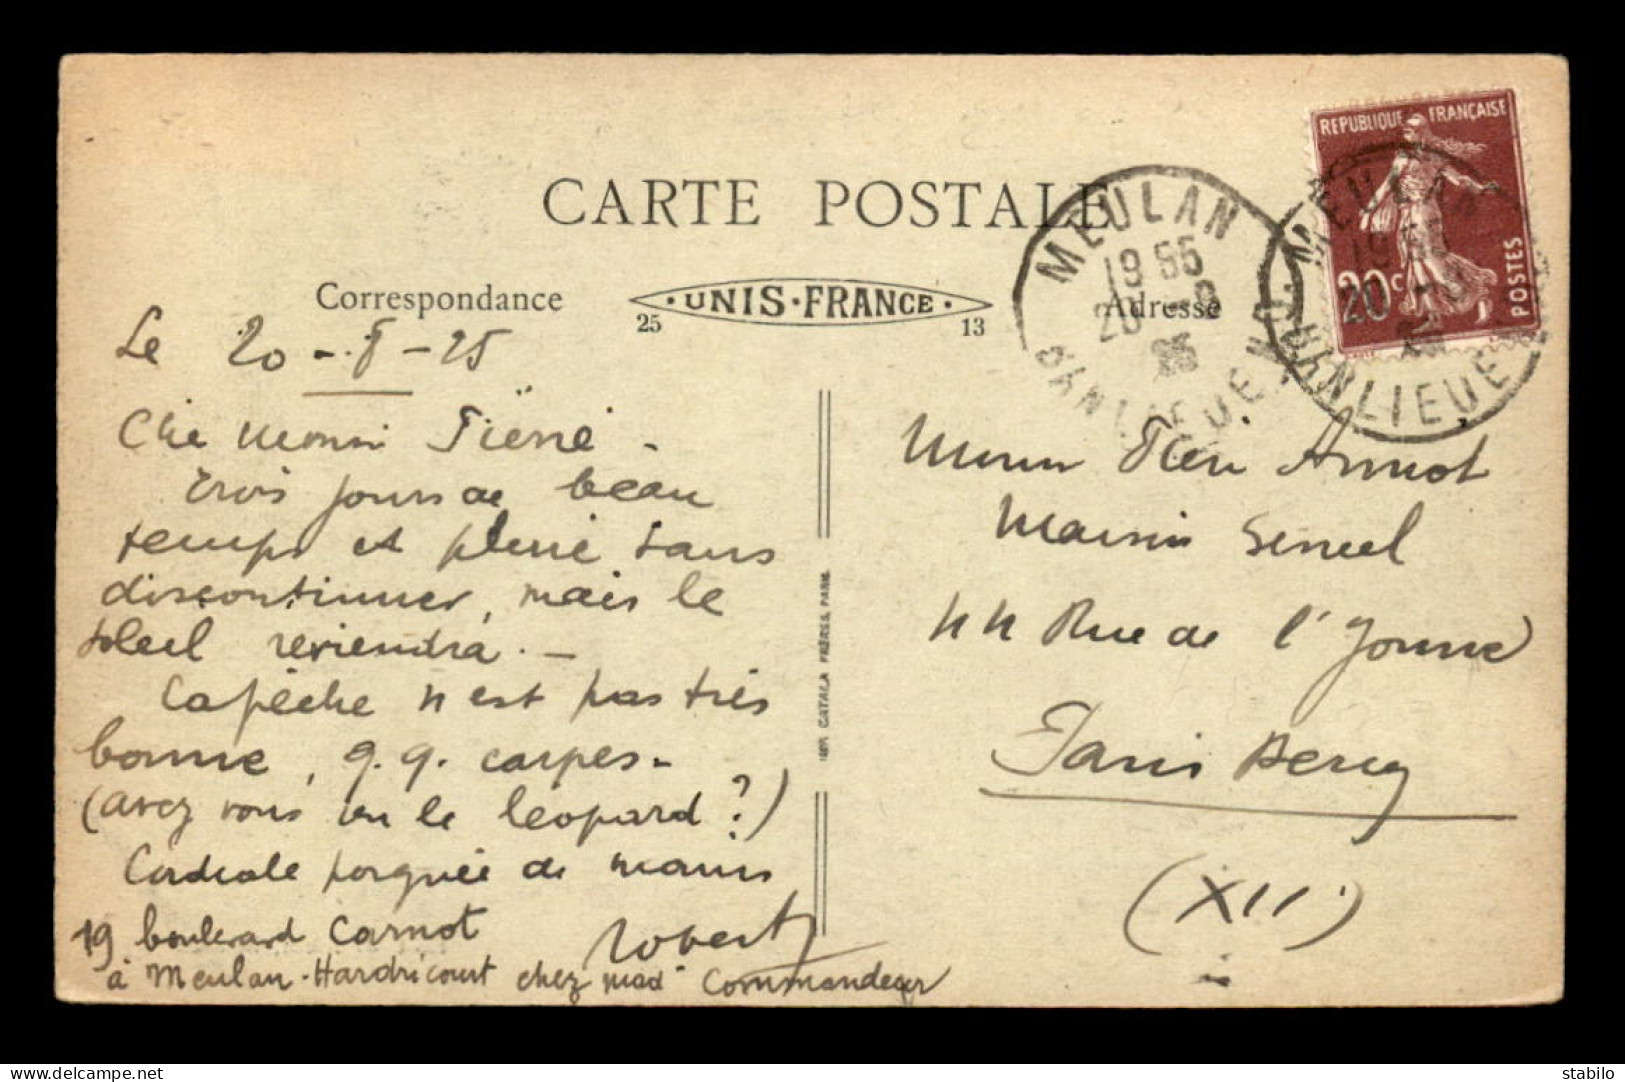 CARTE POSTALE
Correspondance
UNIS-FRANCE
25
13
Adresse
Le 20-8-25
Trois jours de beau
temps et pluie sans
discontinuer, mais le
soleil reviendra. —
La pêche n'est pas très
bonne, q.q. carpes -
(avez vous vu le léopard ?)
Cordiale poignée de mains
Robert
19 boulevard Carnot
à Meulan-Hardricourt chez mad Commandeur
MEULAN
BANLIEUE
REPUBLIQUE FRANÇAISE
20c
POSTES
MEULAN
BANLIEUE
Maison
44 Rue de l'Yonne
Paris Bercy
(XII)
IMP. CATALA FRÈRES, PARIS
delcampe.net
stabilo